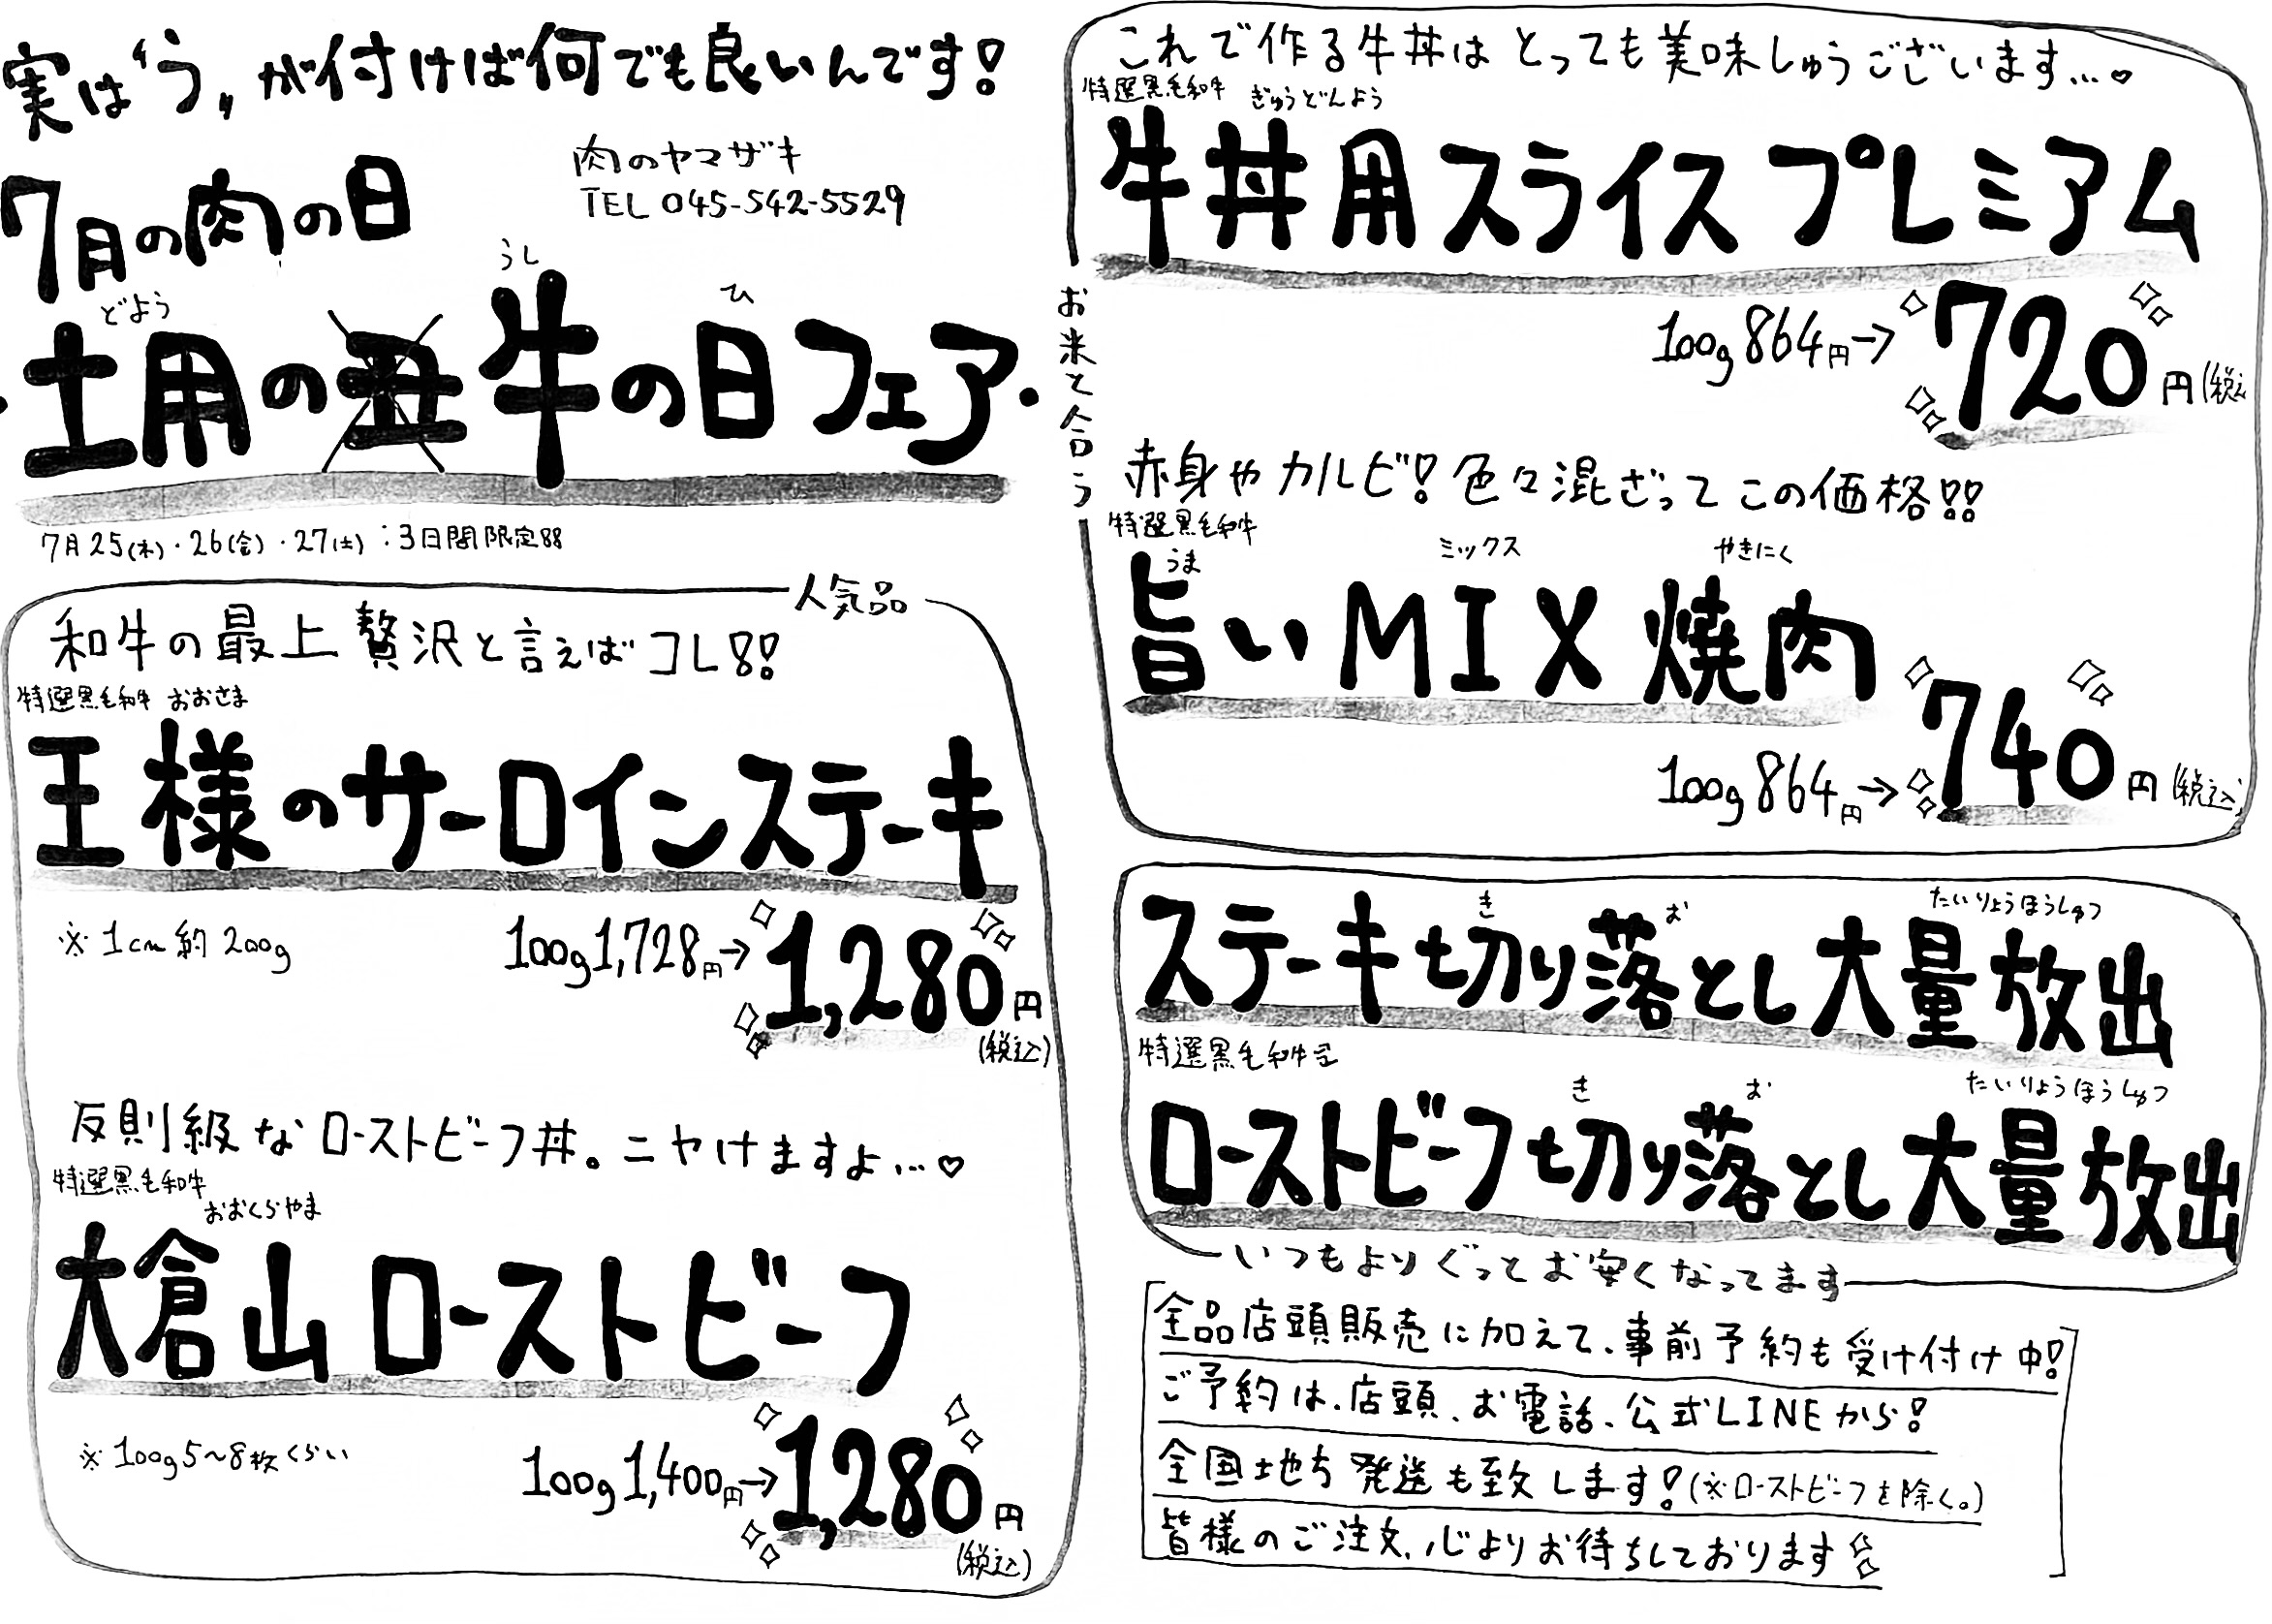 実は“う”が付けば何でも良いんです！
7月の肉の日
肉のヤマザキ
TEL 045-542-5529
どよう うし ひ
土用の丑牛の日フェア
7月25(木)・26(金)・27(土)：3日間限定!!
人気品
和牛の最上贅沢と言えばコレ!!
特選黒毛和牛 おおさま
王様のサーロインステーキ
※1cm約200g
100g1,728円→1,280円
(税込)
反則級なローストビーフ丼。ニヤけますよ…♡
特選黒毛和牛
おおくらやま
大倉山ローストビーフ
※100g5～8枚くらい
100g1,400円→1,280円
(税込)
お米と合う
これで作る牛丼はとっても美味しゅうございます…♡
特選黒毛和牛 ぎゅうどんよう
牛丼用スライスプレミアム
100g864円→720円(税込
赤身やカルビ！色々混ざってこの価格!!
特選黒毛和牛
うま ミックス やきにく
旨いMIX焼肉
100g864円→740円(税込)
き お たいりょうほうしゅつ
ステーキ切り落とし大量放出
特選黒毛和牛
き お たいりょうほうしゅつ
ローストビーフ切り落とし大量放出
いつもよりぐっとお安くなってます
全品店頭販売に加えて、事前予約も受け付け中！
ご予約は、店頭、お電話、公式LINEから！
全国地方発送も致します！(※ローストビーフを除く。)
皆様のご注文、心よりお待ちしております